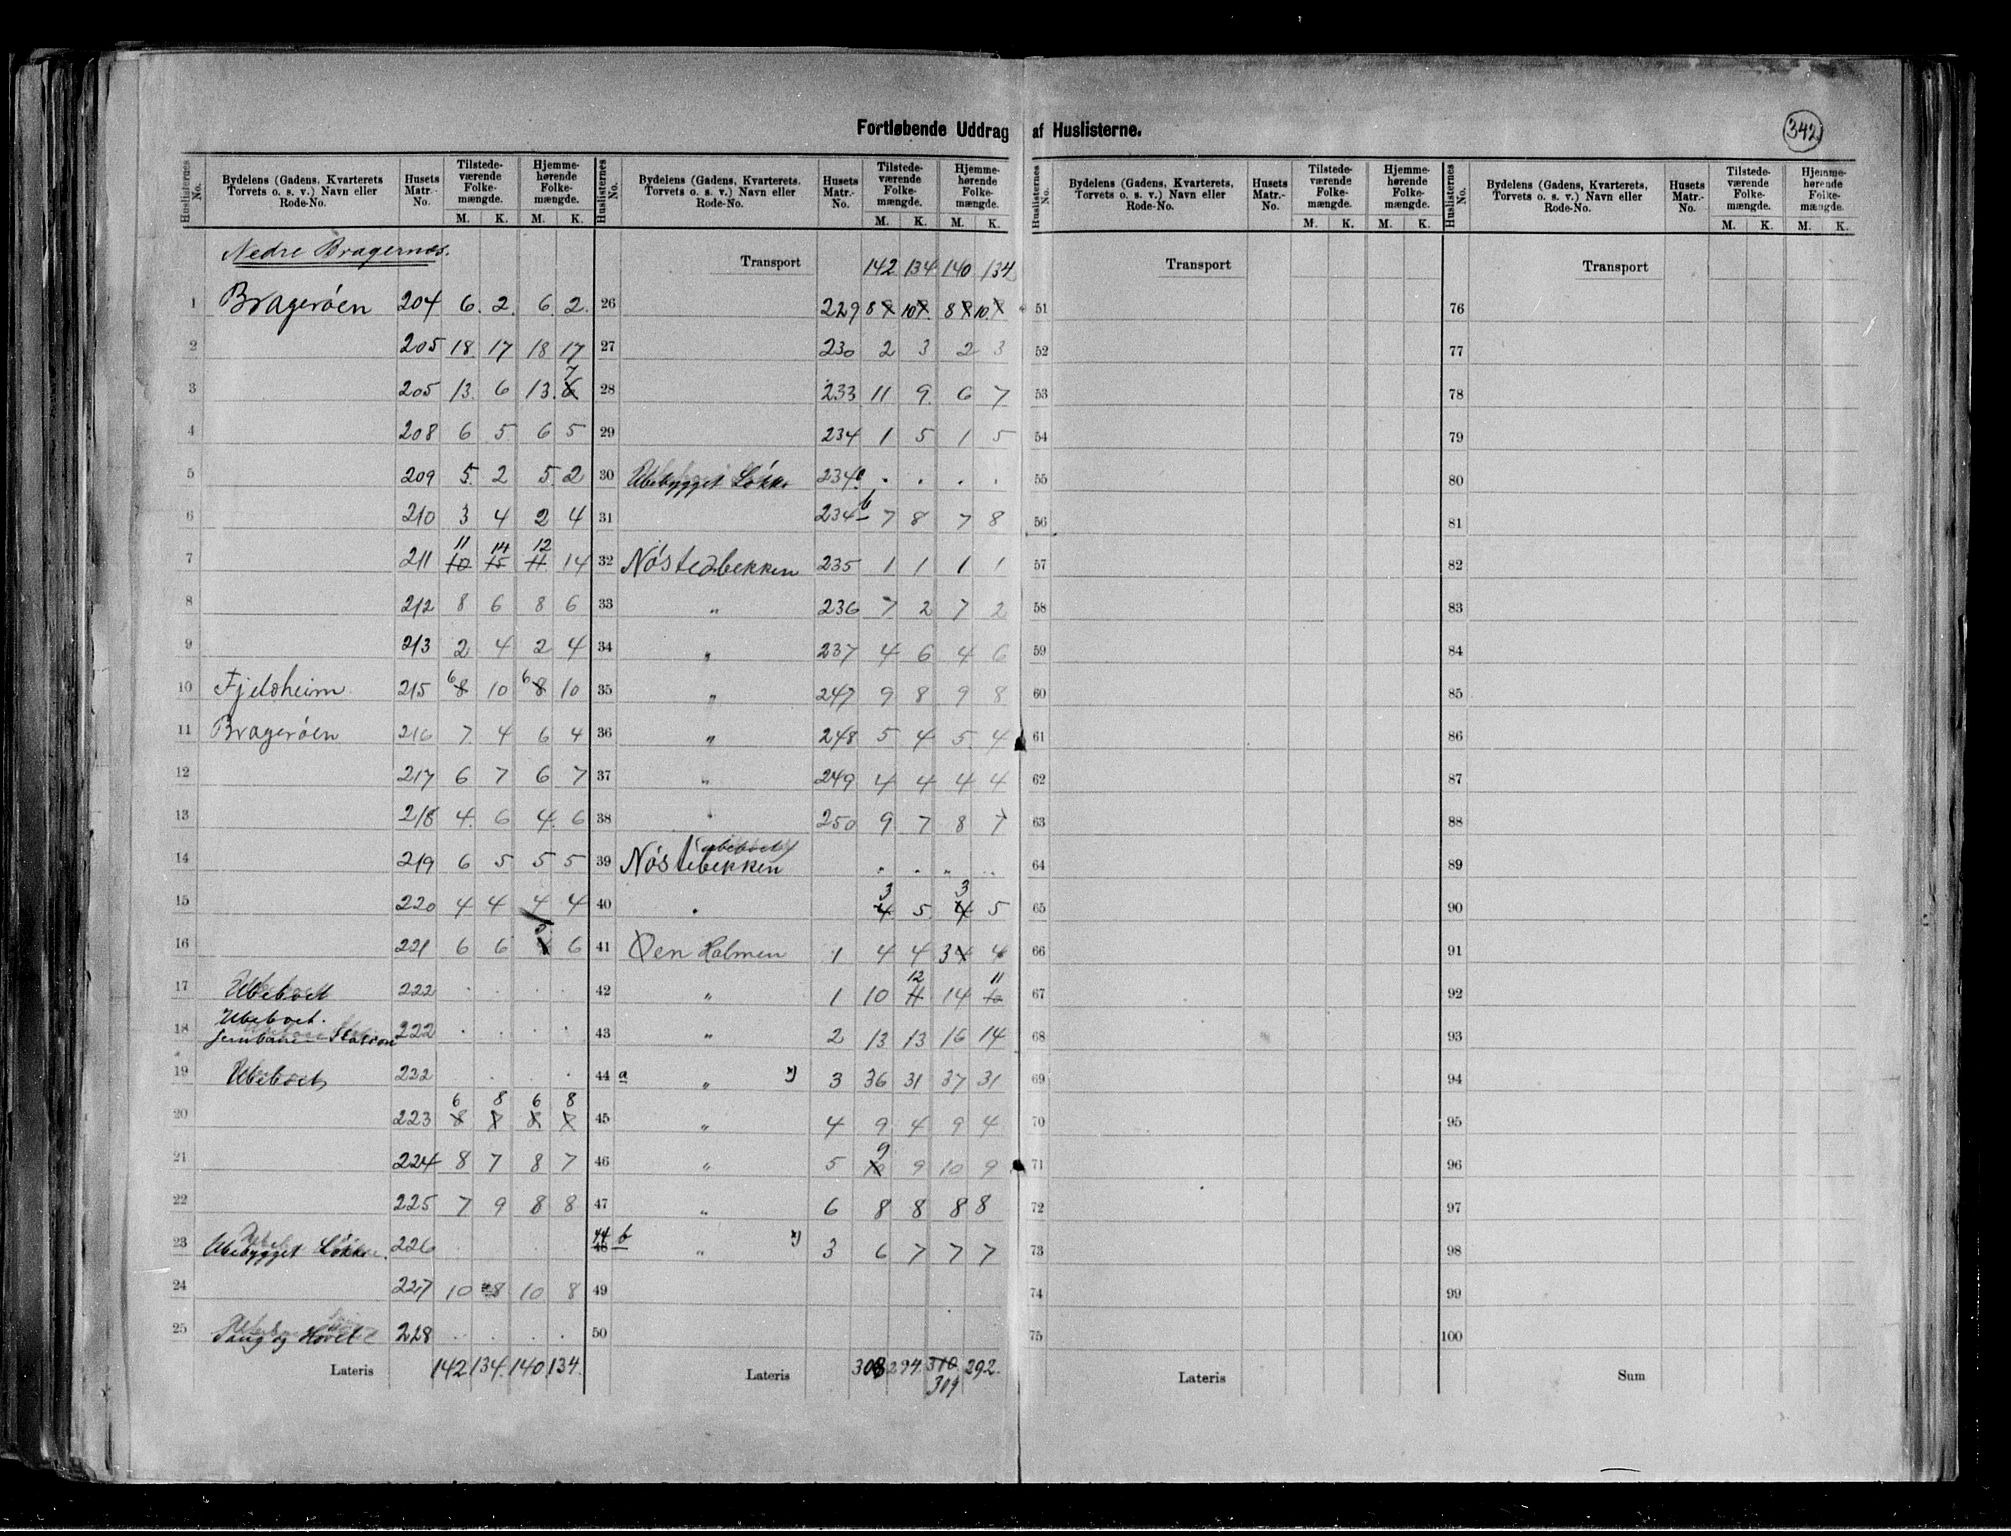 Fortløbende Uddrag af Huslisterne.
342
Huslisternes No. | Bydelens (Gadens, Kvarterets, Torvets o. s. v.) Navn eller Rode-No. | Husets Matr.-No. | Tilstede-værende Folke-mængde. M. K. | Hjemme-hørende Folke-mængde. M. K.
Nedre Bragernæs.
1 Bragerøen 204 6 2 6 2
2 205 18 17 18 17
3 205 13 6 13 6 7
4 208 6 5 6 5
5 209 5 2 5 2
6 210 3 4 2 4
7 211 10 11 15 14 11 12 14
8 212 8 6 8 6
9 213 2 4 2 4
10 Fjeldheim 215 6 8 10 6 8 10
11 Bragerøen 216 7 4 6 4
12 217 6 7 6 7
13 218 4 6 4 6
14 219 6 5 5 5
15 220 4 4 4 4
16 221 6 6 5 6
17 Ubeboet 222 . . . .
18 Ubeboet. Jernbane Station 222 . . . .
19 Ubeboet 222 . . . .
20 223 6 8 8 6 8 8
21 224 8 7 8 7
22 225 7 9 8 8
23 Ubebygget Løkke. 226 . . . .
24 227 10 8 10 8
25 228 . . . .
Lateris 142 134. 140 134.
Huslisternes No. | Bydelens (Gadens, Kvarterets, Torvets o. s. v.) Navn eller Rode-No. | Husets Matr.-No. | Tilstede-værende Folke-mængde. M. K. | Hjemme-hørende Folke-mængde. M. K.
Transport 142 134 140 134
26 229 8 10 8 10
27 230 2 3 2 3
28 233 11 9 6 7
29 234 1 5 1 5
30 Ubebygget Løkke 234 . . . .
31 234 b 7 8 7 8
32 Nøstedbekken 235 1 1 1 1
33 " 236 7 2 7 2
34 " 237 4 6 4 6
35 " 247 9 8 9 8
36 " 248 5 4 5 4
37 " 249 4 4 4 4
38 " 250 9 7 8 7
39 Nøstebekken ubeboet . . . .
40 " 4 3 5 4 3 5
41 Øen Holmen 1 4 4 3 4 4
42 " 1 10 11 12 14 10 11
43 " 2 13 13 16 14
44 a " x) 3 36 31 37 31
45 " 4 9 4 9 4
46 " 5 10 9 9 10 9
47 " 6 8 8 8 8
48 44 b " x) 3 6 7 7 7
49
50
Lateris 308 294. 310 309 292.
Huslisternes No. | Bydelens (Gadens, Kvarterets, Torvets o. s. v.) Navn eller Rode-No. | Husets Matr.-No. | Tilstede-værende Folke-mængde. M. K. | Hjemme-hørende Folke-mængde. M. K.
Transport
51
52
53
54
55
56
57
58
59
60
61
62
63
64
65
66
67
68
69
70
71
72
73
74
75
Lateris
Huslisternes No. | Bydelens (Gadens, Kvarterets, Torvets o. s. v.) Navn eller Rode-No. | Husets Matr.-No. | Tilstede-værende Folke-mængde. M. K. | Hjemme-hørende Folke-mængde. M. K.
Transport
76
77
78
79
80
81
82
83
84
85
86
87
88
89
90
91
92
93
94
95
96
97
98
99
100
Sum